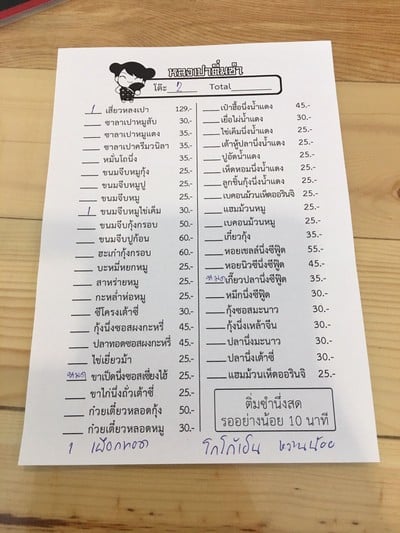 หลงเปาติ่มซำ
โต๊ะ 2 Total
1 เสี่ยวหลงเปา 129.-
ซาลาเปาหมูสับ 30.-
ซาลาเปาหมูแดง 35.-
ซาลาเปาครีมวนิลา 35.-
หมั่นโถนึ่ง 35.-
ขนมจีบหมูกุ้ง 25.-
ขนมจีบหมูปู 25.-
ขนมจีบหมู 25.-
1 ขนมจีบหมูไข่เค็ม 30.-
ขนมจีบกุ้งกรอบ 50.-
ขนมจีบปูก้อน 60.-
ฮะเก๋ากุ้งกรอบ 60.-
บะหมี่หยกหมู 25.-
สาหร่ายหมู 25.-
กะหล่ำห่อหมู 25.-
ซีโครงเต้าซี่ 30.-
กุ้งนึ่งซอสผงกะหรี่ 45.-
ปลาทอดซอสผงกะหรี่ 45.-
ไข่เยี่ยวม้า 25.-
หมด ขาเป็ดนึ่งซอสเซี่ยงไฮ้ 25.-
ขาไก่นึ่งถั่วเต้าซี่ 25.-
ก๋วยเตี๋ยวหลอดกุ้ง 50.-
ก๋วยเตี๋ยวหลอดหมู 30.-
เป๋าฮื้อนึ่งน้ำแดง 45.-
เยื่อไผ่น้ำแดง 30.-
ไข่เค็มนึ่งน้ำแดง 25.-
เต้าหู้ปลานึ่งน้ำแดง 25.-
ปูอัดน้ำแดง 25.-
เห็ดหอมนึ่งน้ำแดง 25.-
ลูกชิ้นกุ้งนึ่งน้ำแดง 25.-
เบคอนม้วนเห็ดออรินจิ 25.-
แฮมม้วนหมู 25.-
เบคอนม้วนหมู 25.-
เกี๊ยวกุ้ง 35.-
หอยเชลล์นึ่งซีฟู๊ด 55.-
หอยนิวซีนึ่งซีฟู๊ด 45.-
หมด เกี๊ยวปลานึ่งซีฟู๊ด 35.-
หมึกนึ่งซีฟู๊ด 30.-
กุ้งซอสมะนาว 30.-
กุ้งนึ่งเหล้าจีน 30.-
ปลานึ่งมะนาว 30.-
ปลานึ่งเต้าซี่ 30.-
แฮมม้วนเห็ดออรินจิ 25.-
ติ่มซำนึ่งสด
รออย่างน้อย 10 นาที
1 เผือกทอด โกโก้เย็น หวานน้อย